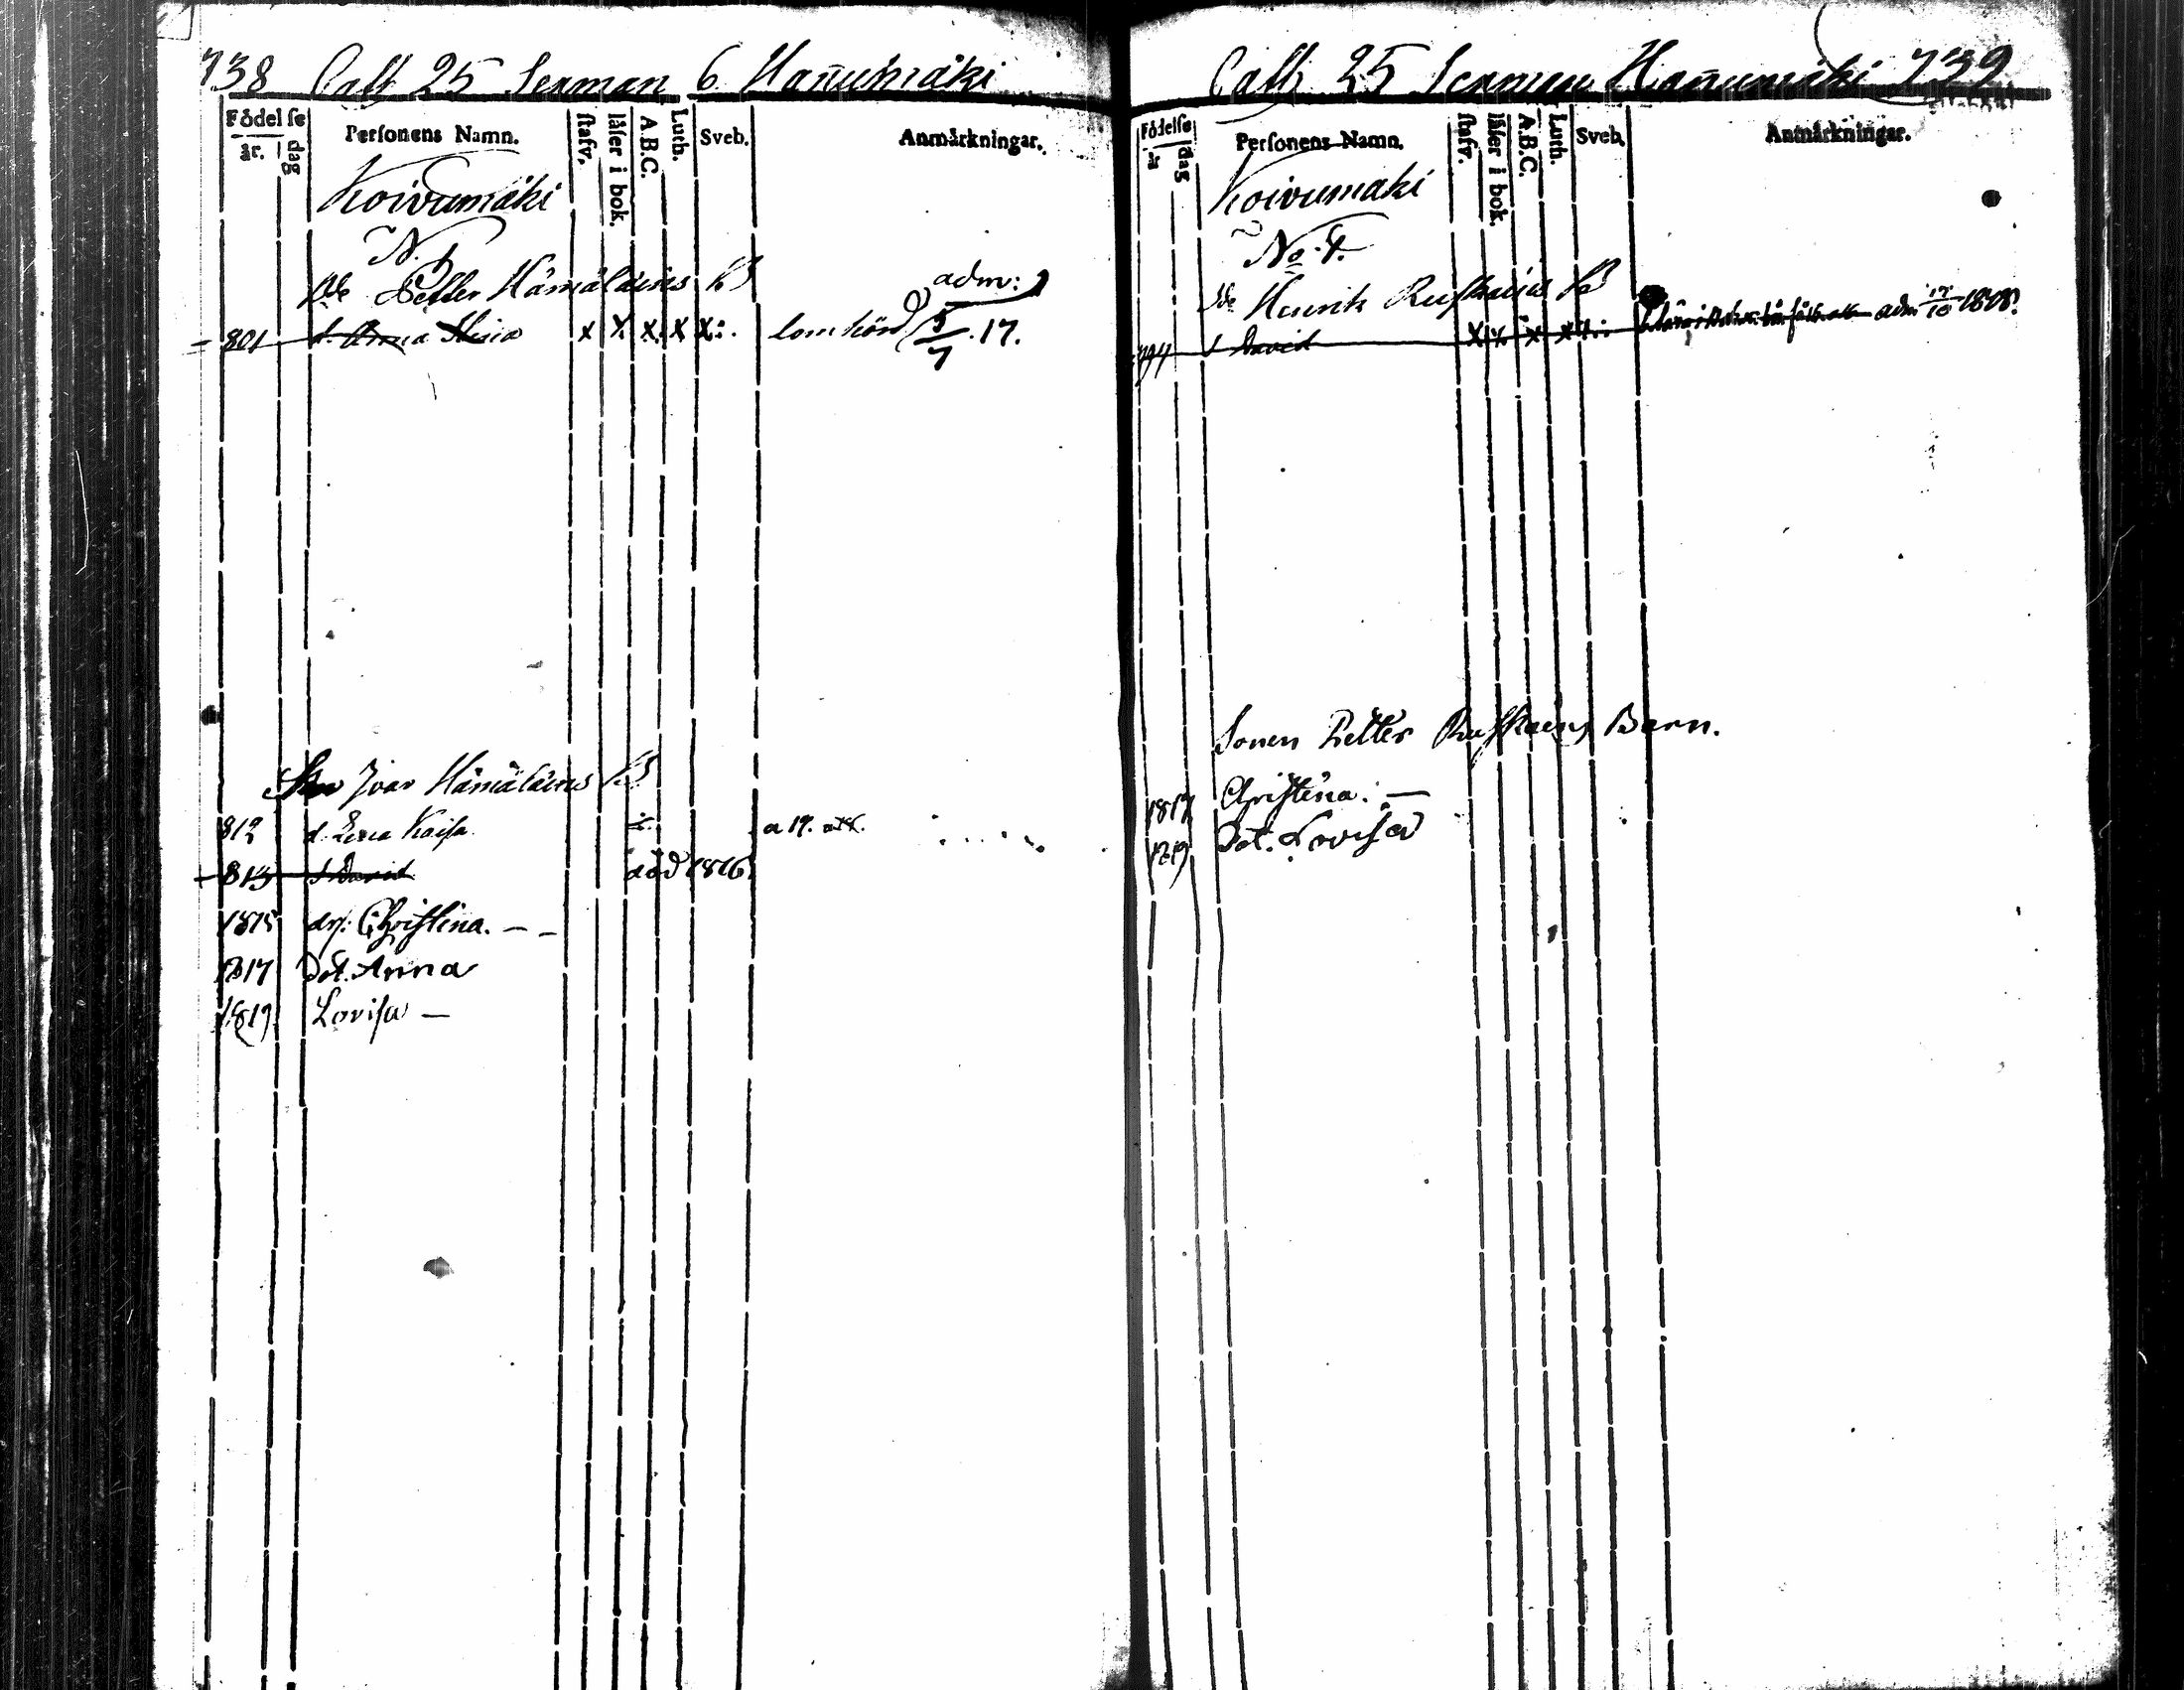 738 Calb 25 Lexman 6 Hanumäki
Födelse
år. dag
Personens Namn.
stafv.
låser i bok.
A.B.C.
Luth.
Sveb.
Anmärkningar.
Koivumäki
N.
Petter Hämäläines
adm:
801 d. Anna Stina x x x x x lomhörd 5/7 17.
Ivar Hämäläines
812 d. Lena Kaisa a 19.
813 s David död 1816
1815 dr: Christina. - -
1817 Dot. Anna
1819 Lovisa -
Calb 25 Lexman Hanumäki 739
Födelse
år dag
Personens Namn.
stafv.
låser i bok.
A.B.C.
Luth.
Sveb.
Anmärkningar.
Koivumäki
No. 4.
Henrik Ruskains
794 s David x x x x x adm 1808.
Sonen Petter Ruskains Barn.
1817 Christina. -
1819 Dot. Lovisa